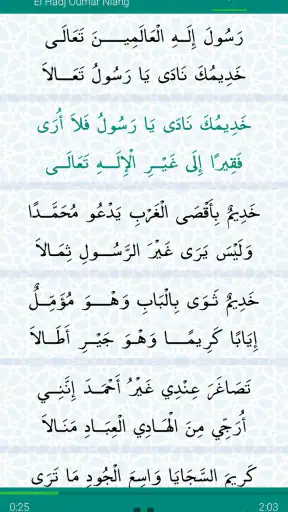 El Hadj Oumar Niang
رَسُولَ إِلَـهِ الْعَالَمِيـــنَ تَعَالَـى
خَدِيمُكَ نَادَى يَا رَسُولُ تَعَـــالاَ
خَدِيمُكَ نَادَى يَا رَسُولُ فَلاَ أُرَى
فَقِيرًا إِلَى غَيْـرِ الْإِلَـــهِ تَعَالَـــى
خَدِيمٌ بِأَقْصَى الْغَرْبِ يَدْعُو مُحَمَّـدًا
وَلَيْسَ يَرَى غَيْرَ الرَّسُـــولِ ثِمَـالاَ
خَدِيمٌ ثَوَى بِالْبَابِ وَهْـــوَ مُؤَمِّـلٌ
إِيَابًا كَرِيمًــا وَهْوَ جَيْـرِ أَطَـالاَ
تَصَاغَرَ عِنْدِي غَيْرُ أَحْمَـدَ إِنَّنِـي
أُرَجِّي مِنَ الْهَـادِي الْعِبَـادِ مَنَـالاَ
كَرِيمَ السَّجَايَا وَاسِعَ الْجُودِ مَا تَرَى
0:25
2:03